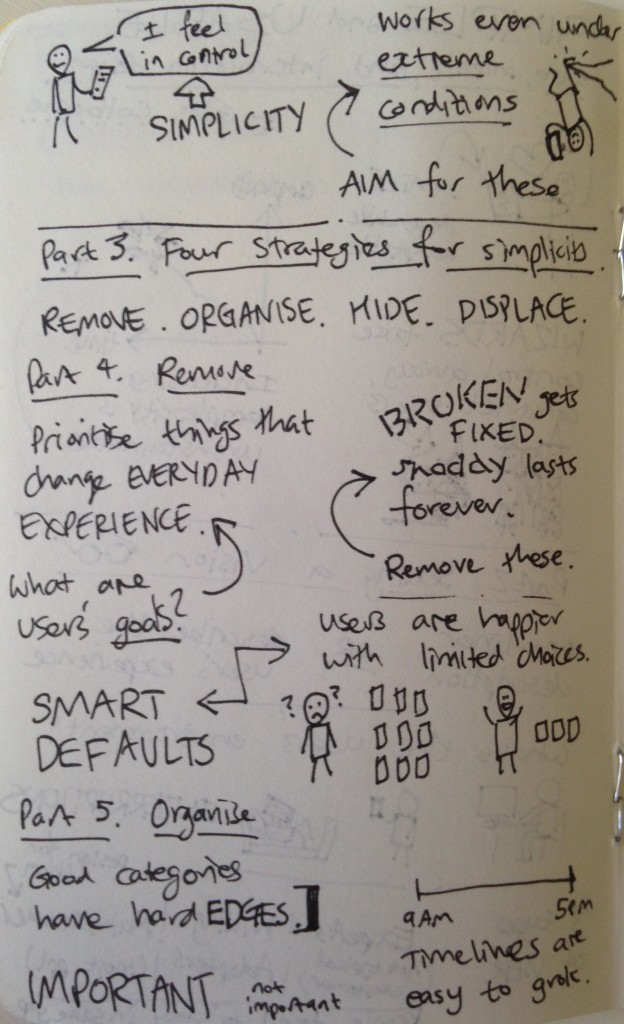 ± feel
in control
SIMPLICITY
works even under
extreme
conditions
AIM for these
Part 3. Four Strategies for simplicity
REMOVE. ORGANISE. HIDE. DISPLACE.
Part 4. Remove
Prioritise things that
change EVERYDAY
EXPERIENCE.
What are
users' goals?
BROKEN gets
FIXED.
shoddy lasts
forever.
Remove these.
users are happier
with limited choices.
SMART
DEFAULTS
? ?
Part 5. Organise
Good categories
have hard EDGES.
9AM 5PM
Timelines are
easy to grok.
IMPORTANT not
important